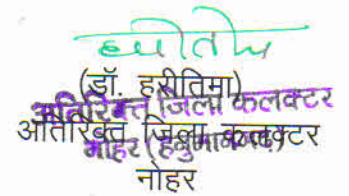 (डॉ. हरीतिमा)
अतिरिक्त जिला कलक्टर
अतिरिक्त जिला कलक्टर
नोहर (हनुमानगढ़)
नोहर